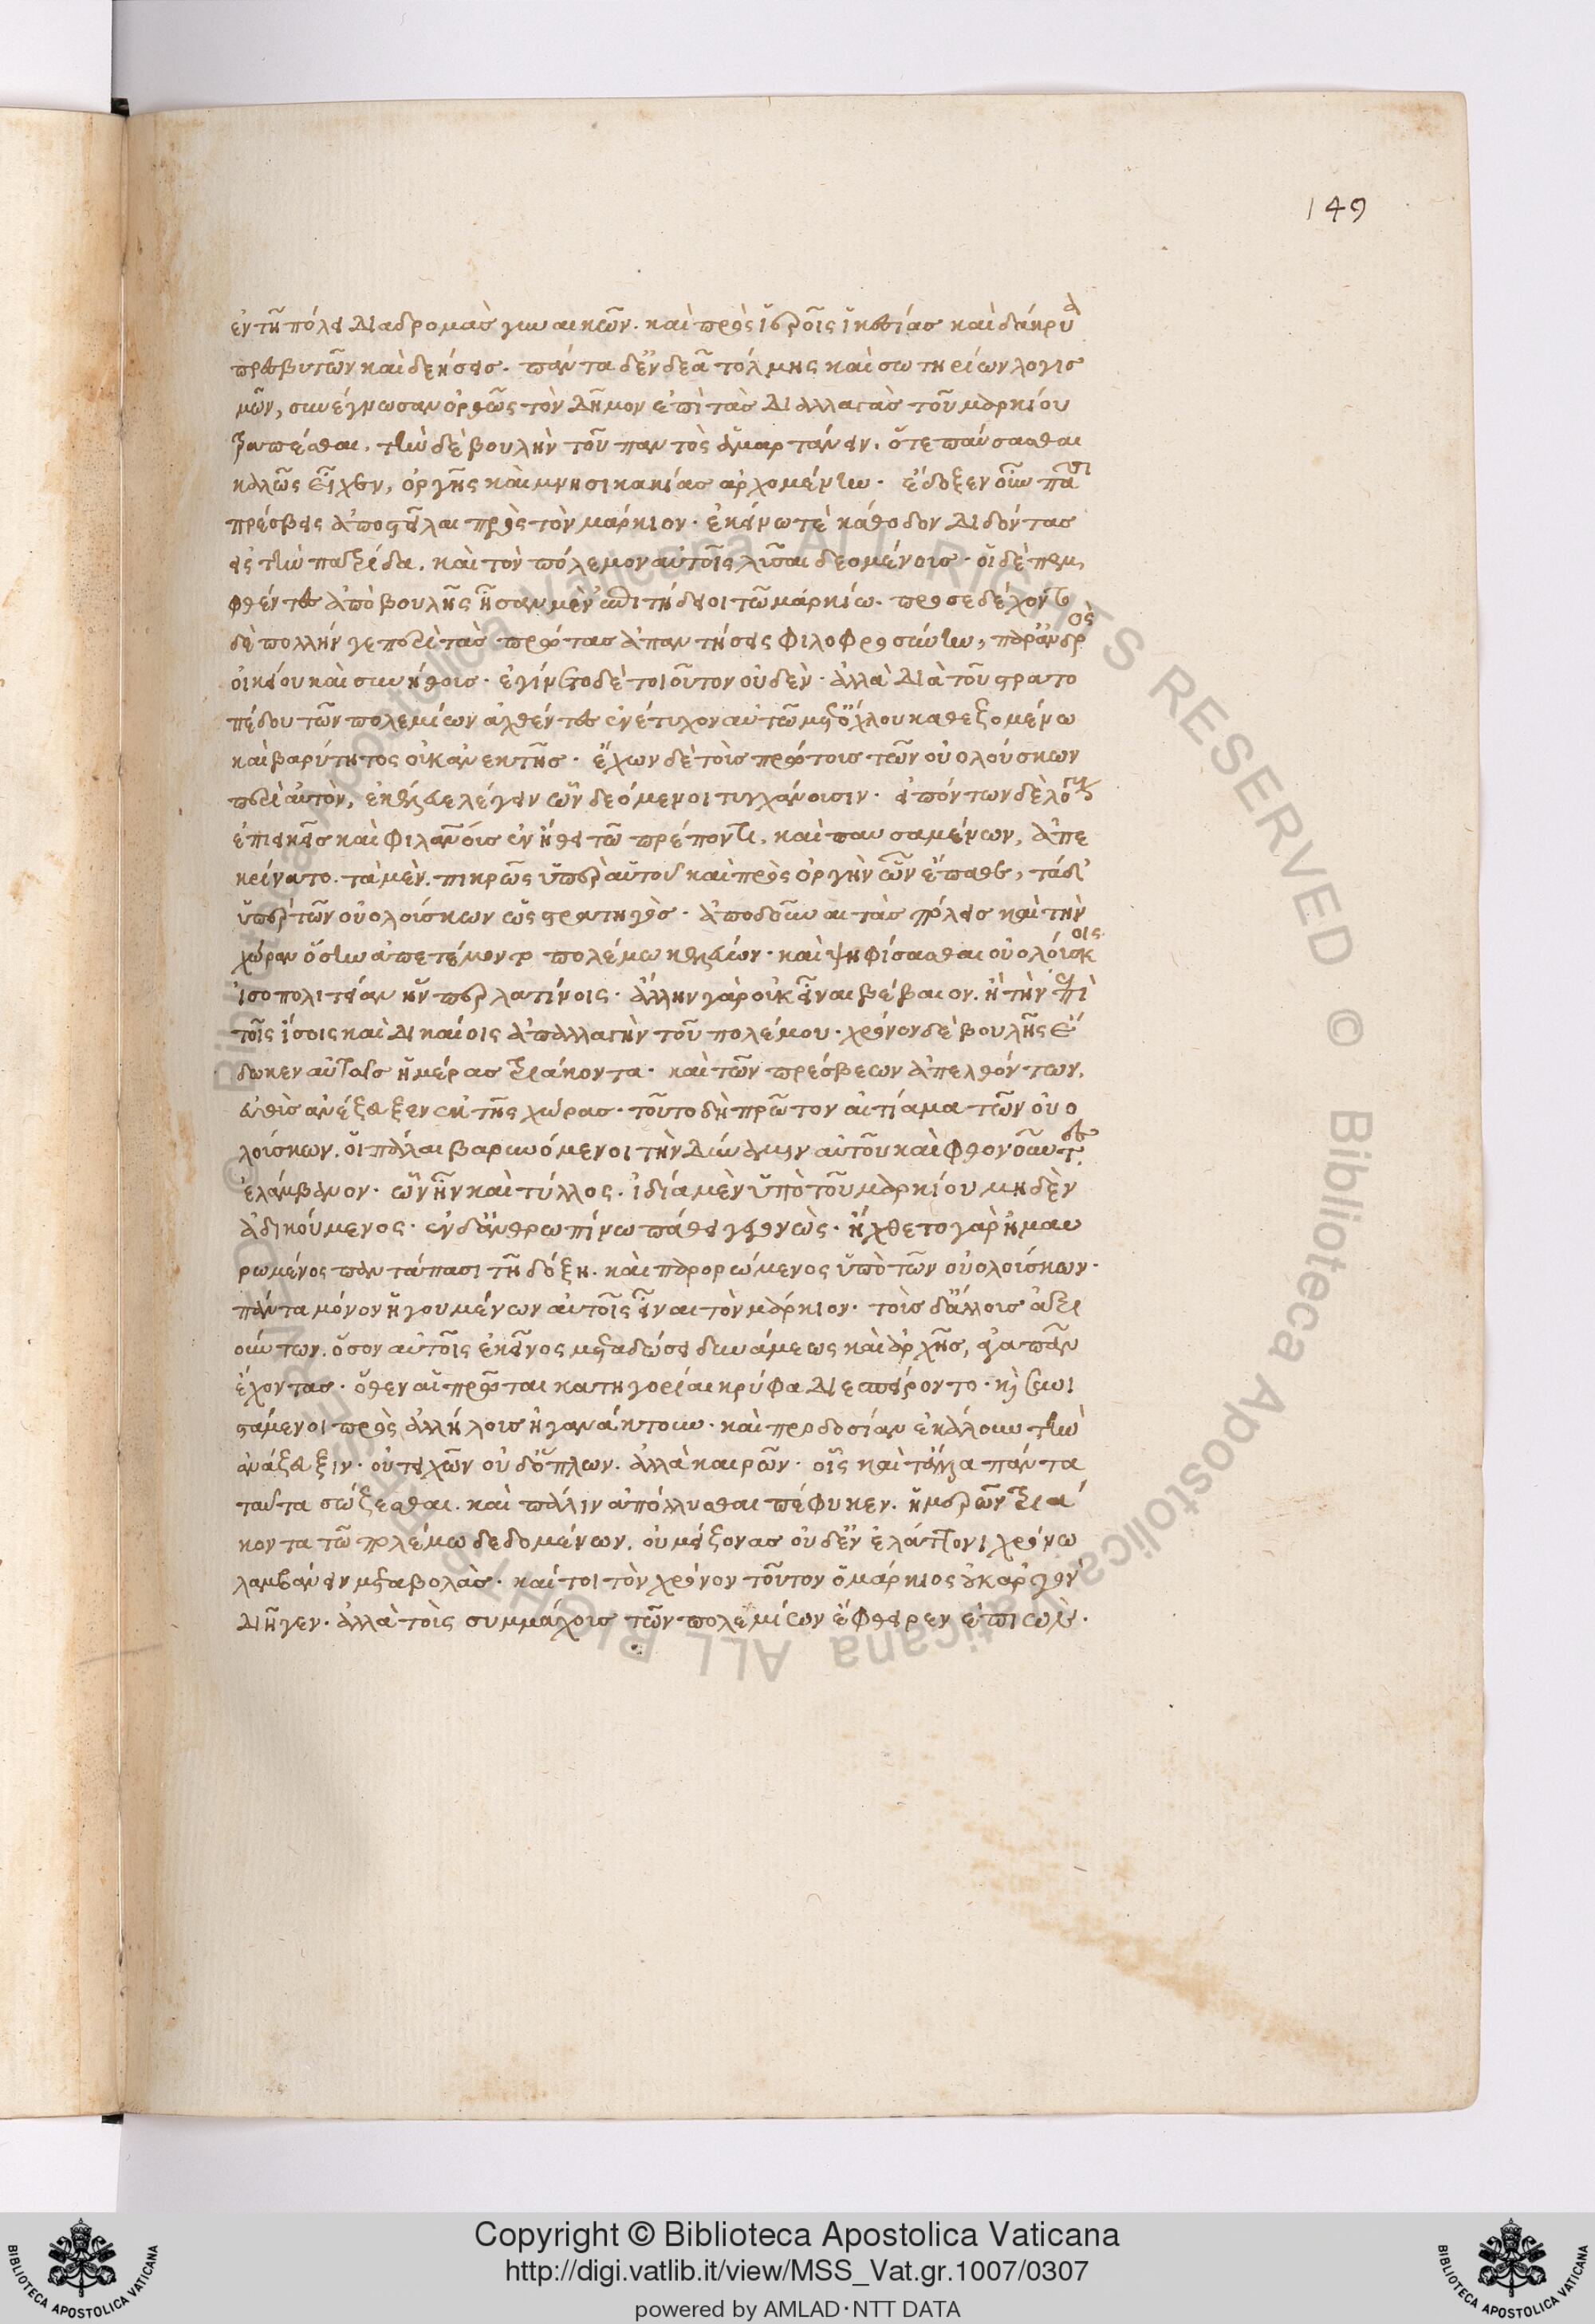 149
ἐν τῆ πόλει διαδρομὰς γυναικῶν. καὶ πρὸς ἱεροῖς ἱκεσίας καὶ δάκρυα
πρεσβυτῶν καὶ δεήσεις. πάντα δ' ἐνδεᾶ τόλμης καὶ σωτηρίων λογισ
μῶν, συνέγνωσαν ὀρθῶς τὸν δῆμον ἐπὶ τὰς διαλλαγὰς τοῦ μαρκίου
τραπέσθαι. τὴν δὲ βουλὴν τοῦ παντὸς ἁμαρτάνειν. ὅτε παύσασθαι
καλῶς εἶχεν, ὀργῆς καὶ μνησικακίας ἀρχομένην. ἔδοξεν οὖν πᾶσι
πρέσβεις ἀποστεῖλαι πρὸς τὸν μάρκιον. ἐκείνω τὲ κάθοδον διδόντας
εἰς τὴν πατρίδα. καὶ τὸν πόλεμον αὐτοῖς λῦσαι δεομένους. οἱ δὲ πεμ
φθέντες ἀπὸ βουλῆς ἦσαν μὲν ἐπιτήδειοι τῶ μαρκίω. προσεδέχοντο
δὲ πολλήν γε περὶ τὰς πρώτας ἀπαντήσεις φιλοφροσύνην, παρ' ἀνδρὸς
οἰκείου καὶ συνήθους. ἐγίνετο δὲ τοιοῦτον οὐδὲν. ἀλλὰ διὰ τοῦ στρατο
πέδου τῶν πολεμίων ἀχθέντες ἐνέτυχον αὐτῶ μετ' ὄχλου καθεζομένω
καὶ βαρύτητος οὐκ ἀνεκτῆς. ἔχων δὲ τοὺς πρώτους τῶν οὐολούσκων
περὶ αὐτὸν, ἐκέλευε λέγειν ὧν δεόμενοι τυγχάνουσιν. εἰπόντων δὲ λόγους
ἐπιεικεῖς καὶ φιλανους ἐν ἤθει τῶ πρέποντι. καὶ παυσαμένων, ἀπε
κρίνατο. τὰ μὲν. πικρῶς ὑπὲρ αὑτοῦ καὶ πρὸς ὀργὴν ὧν ἔπαθε, τὰ δ'
ὑπὲρ τῶν οὐολούσκων ὡς στρατηγὸς. ἀποδοῦναι τὰς πόλεις καὶ τὴν
χώραν ὅσην ἀπετέμοντο πολέμω κελεύων. καὶ ψηφίσασθαι οὐολούσκοις
ἰσοπολιτείαν ἣν περ λατίνοις. ἄλλην γὰρ οὐκ εἶναι βέβαιον. ἢ τὴν ἐπὶ
τοῖς ἴσοις καὶ δικαίοις ἀπαλλαγὴν τοῦ πολέμου. χρόνον δὲ βουλῆς ἔ
δωκεν αὐτοῖς ἡμέρας τριάκοντα. καὶ τῶν πρέσβεων ἀπελθόντων,
εὐθὺς ἀνέζευξεν ἐκ τῆς χώρας. τοῦτο δὴ πρῶτον αἰτίαμα τῶν οὐο
λούσκων. οἱ πάλαι βαρυνόμενοι τὴν δύναμιν αὐτοῦ καὶ φθονοῦντες
ἐλάμβανον. ὧν ἦν καὶ τύλλος. ἰδία μὲν ὑπὸ τοῦ μαρκίου μηδὲν
ἀδικούμενος. ἐν δ' ἀνθρωπίνω πάθει γεγονὼς. ἤχθετο γὰρ ἠμαυ
ρωμένος παντάπασι τῆ δόξη. καὶ παρορώμενος ὑπὸ τῶν οὐολούσκων.
πάντα μόνον ἡγουμένων αὐτοῖς εἶναι τὸν μάρκιον. τοὺς δ' ἄλλους ἀξι
ούντων. ὅσον αὐτοῖς ἐκεῖνος μεταδώσει δυνάμεως καὶ ἀρχῆς, ἀγαπᾶν
ἔχοντας. ὅθεν αἱ πρῶται κατηγορίαι κρύφα διεσπείροντο. καὶ συνι
στάμενοι πρὸς ἀλλήλους ἠγανάκτουν. καὶ προδοσίαν ἐκάλουν τὴν
ἀνάζευξιν. οὐ τειχῶν οὐδ' ὅπλων. ἀλλὰ καιρῶν. οἷς καὶ τἄλλα πάντα
ταῦτα σώζεσθαι. καὶ πάλιν ἀπόλλυσθαι πέφυκεν. ἡμερῶν τριά
κοντα τῶ πολέμω δεδομένων. οὐ μείζονας οὐδὲν ἐλάττονι χρόνω
λαμβάνειν μεταβολὰς. καίτοι τὸν χρόνον τοῦτον ὁ μάρκιος οὐκ ἀργὸν
διῆγεν. ἀλλὰ τοὺς συμμάχους τῶν πολεμίων ἔφθειρεν ἐπιὼν.
Copyright © Biblioteca Apostolica Vaticana
http://digi.vatlib.it/view/MSS_Vat.gr.1007/0307
powered by AMLAD·NTT DATA
BIBLIOTECA APOSTOLICA VATICANA
BIBLIOTECA APOSTOLICA VATICANA
© Biblioteca Apostolica Vaticana ALL RIGHTS RESERVED © Biblioteca Apostolica Vaticana ALL RIGHTS RESERVED